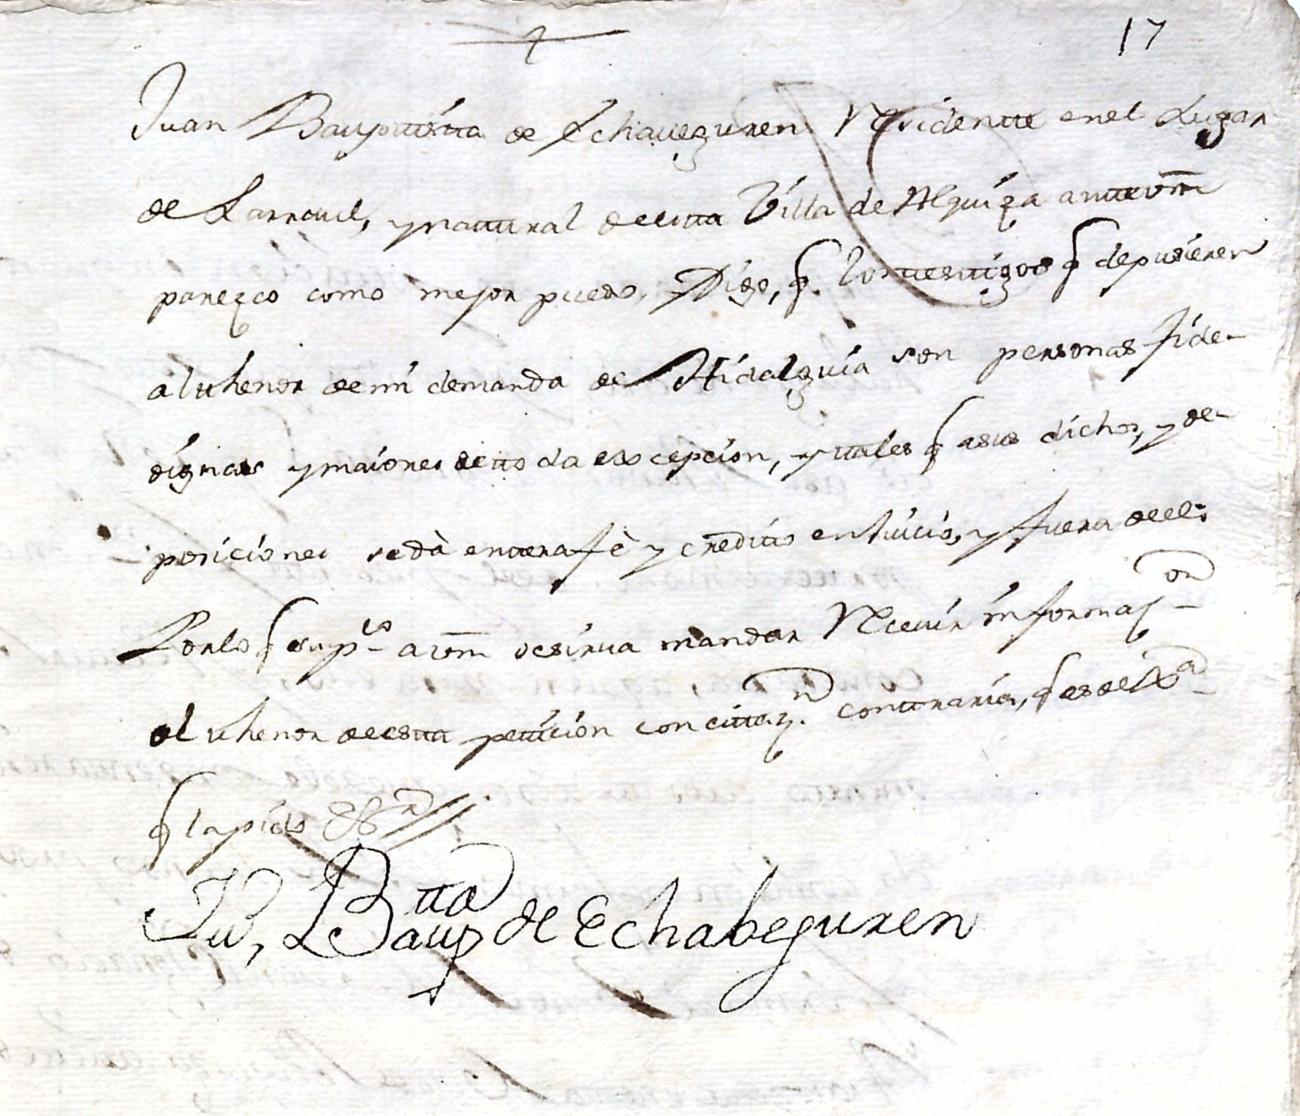 17
Juan Bauptista de Echaueguren Residentte enel Lugar
de Larraul, y natural de esta Villa de Alquiza antte Vm
parezco como mejor puedo, y Digo, q. los testtigos q depusieren
al thenor de mi demanda de Hidalguia son personas fide-
dignas y maiores de toda excepcion, y tales q asus dichos, y de-
posiciones seda enttera fè y credito en Juicio, y fuera de el.
Por lo q supco a Vm se sirva mandar Receuir informazon
al thenor de esta peticion con cittazn. contraria, q es de Jusa
q la pido &a
Ju, Bauptta de Echabeguren